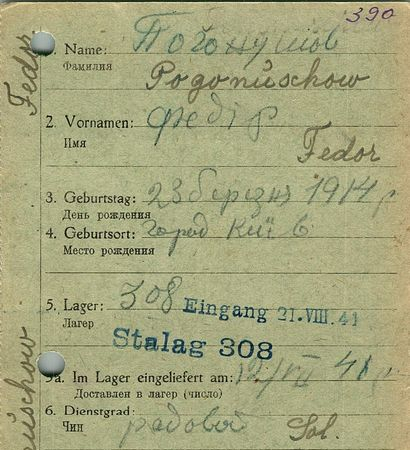 390
1. Name: Погонушов
Фамилия
Pogonuschow
2. Vornamen: Федір
Имя
Fedor
3. Geburtstag: 23 березня 1914 р
День рождения
4. Geburtsort: город Київ
Место рождения
5. Lager: 308 Eingang 21.VIII.41
Лагерь
Stalag 308
5a. Im Lager eingeliefert am: 12/VII 41
Доставлен в лагерь (число)
6. Dienstgrad: рядовой Sol.
Чин
Fedor
uschow